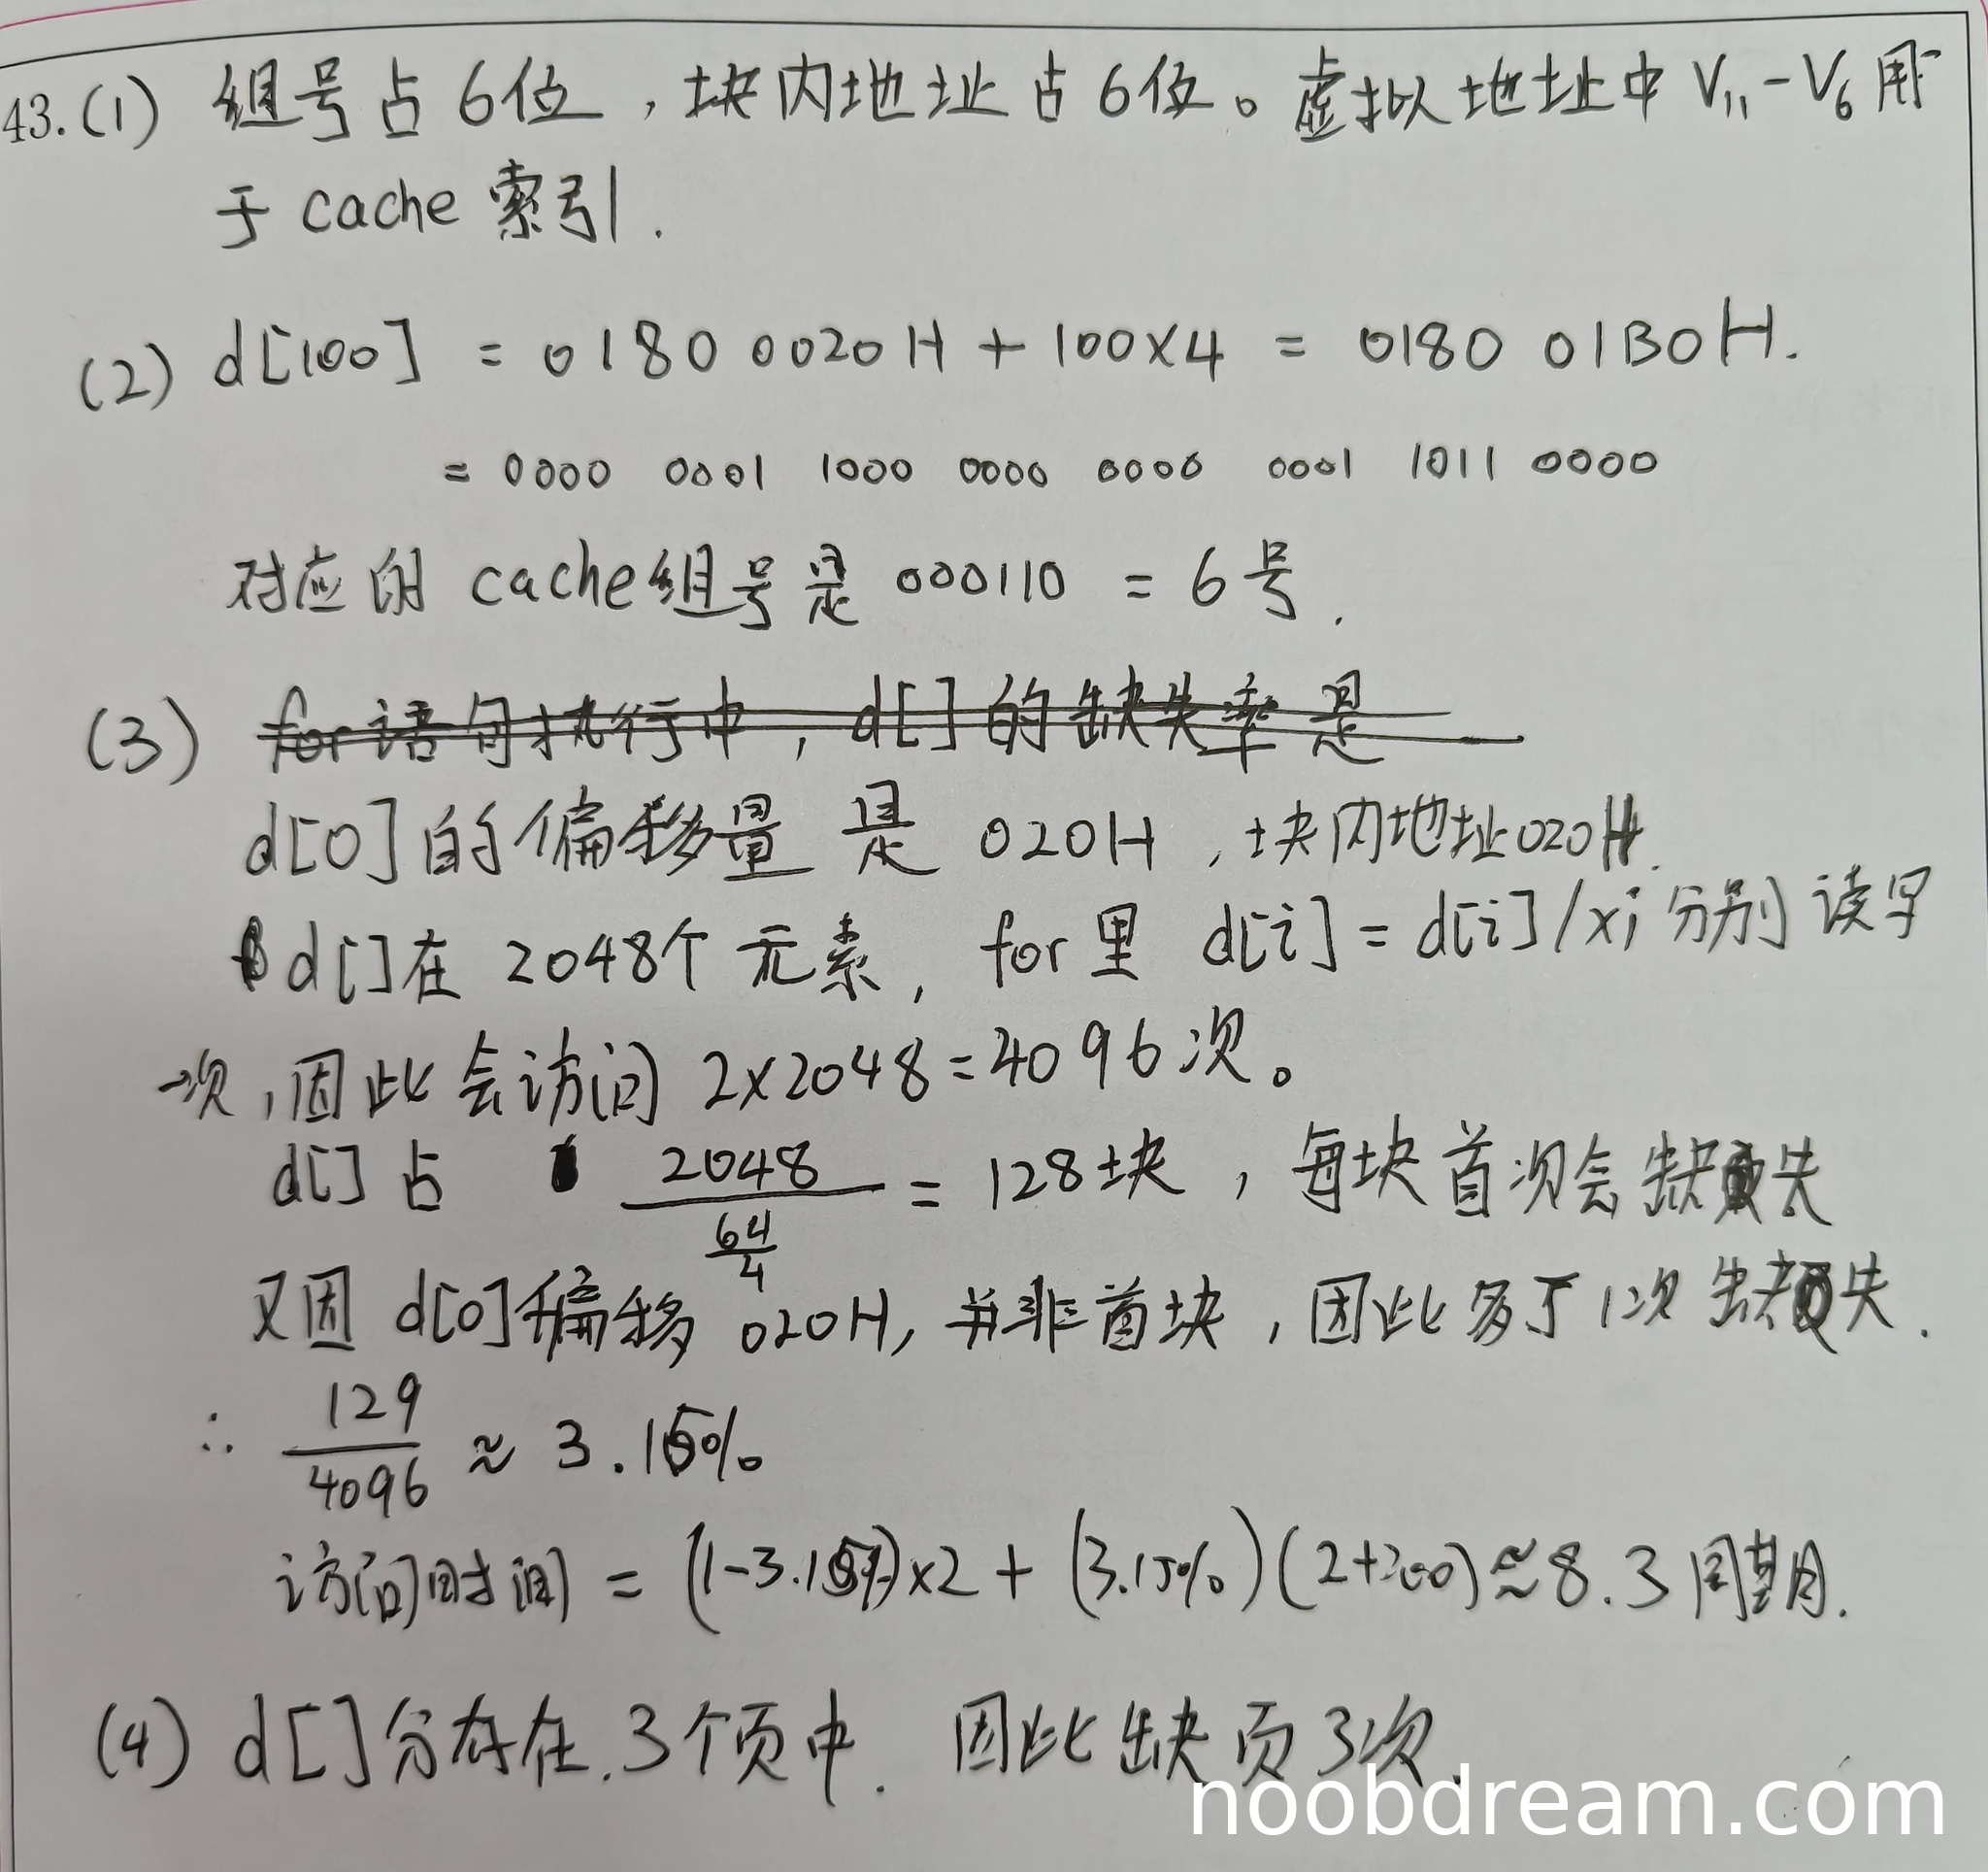 43.(1) 组号占6位，块内地址占6位。虚拟地址中 V₁₁-V₆ 用
于 cache 索引.
(2) d[100] = 0180 0020H + 100×4 = 0180 01B0H.
= 0000 0001 1000 0000 0000 0001 1011 0000
对应的 cache组号是 000110 = 6号.
(3) for语句执行中，d[]的缺失率是
d[0]的偏移量是 020H，块内地址020H.
d[]在 2048个元素，for里 d[i] = d[i]/x; 分别读写
一次，因此会访问 2×2048=4096次。
d[]占 2048/(64/4) = 128块，每块首次会缺失
又因 d[0]偏移 020H，并非首块，因此多了1次缺失.
∴ 129/4096 ≈ 3.15%
访问时间 = (1-3.15%)×2 + (3.15%)(2+200)≈8.3周期.
(4) d[]分布在.3个页中. 因此缺页3次.
noobdream.com